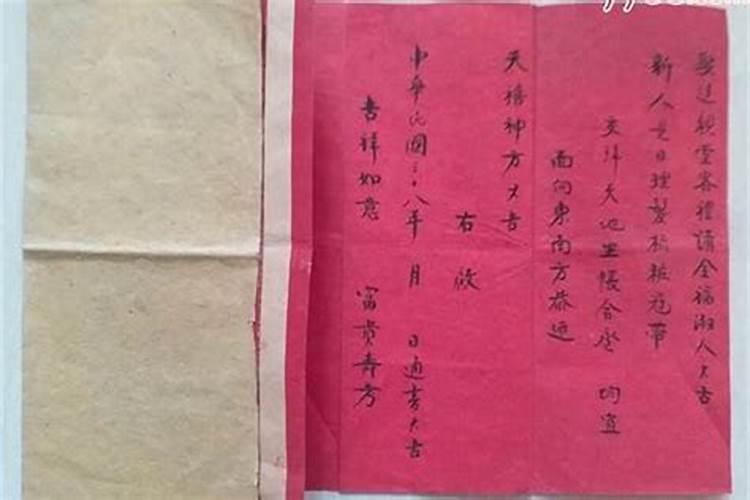 娶送親堂客禮請全福淑人大吉
新人是日理髮梳粧冠帶
交拜天地坐帳合巹 均宜
面向東南方恭迎
天禧神方大吉
右啟
中華民國三十八年 月 日適吉大吉
吉祥如意 富貴壽考